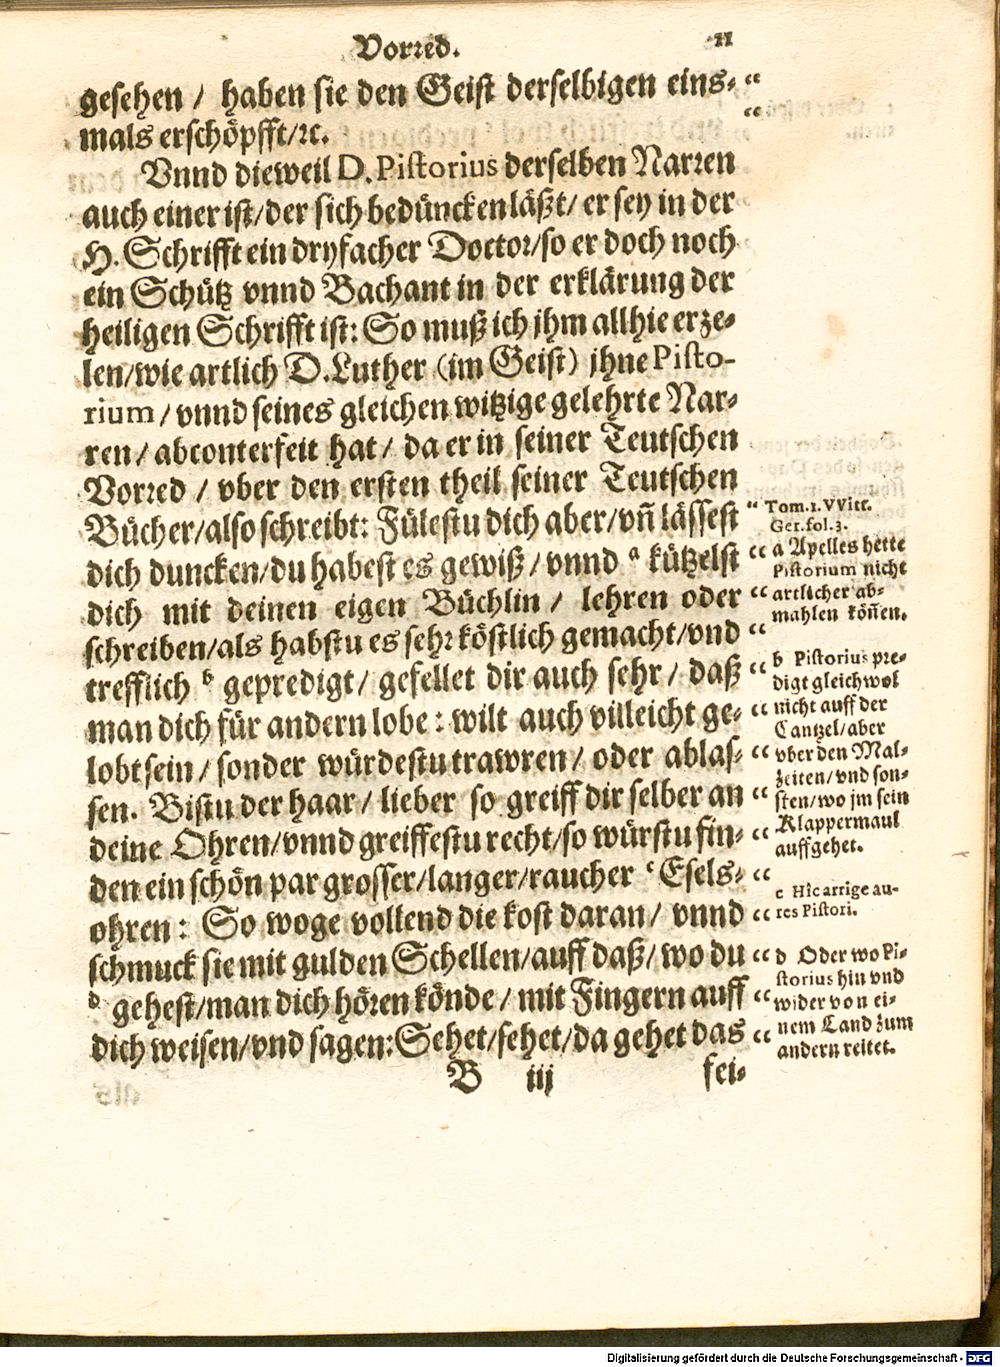 Vorred.
11
gesehen / haben sie den Geist derselbigen eins-
mals erschöpfft/ꝛc.
Vnnd dieweil D. Pistorius derselben Narren
auch einer ist/der sich bedüncken läßt/ er sey in der
H. Schrifft ein dryfacher Doctor/so er doch noch
ein Schütz vnnd Bachant in der erklärung der
heiligen Schrifft ist: So muß ich jhm allhie erze-
len/wie artlich D. Luther (im Geist) jhne Pisto-
rium / vnnd seines gleichen witzige gelehrte Nar-
ren / abconterfeit hat / da er in seiner Teutschen
Vorred / vber den ersten theil seiner Teutschen
Bücher/also schreibt: Fülestu dich aber/vn̄ lässest
dich duncken/du habest es gewiß / vnnd a kützelst
dich mit deinen eigen Büchlin / lehren oder
schreiben/als habstu es sehr köstlich gemacht/vnd
trefflich b gepredigt/ gefellet dir auch sehr / daß
man dich für andern lobe : wilt auch villeicht ge-
lobt sein / sonder würdestu trawren / oder ablas-
sen. Bistu der haar / lieber so greiff dir selber an
deine Ohren/vnnd greiffestu recht/so würstu fin-
den ein schön par grosser/langer/raucher c Esels-
ohren : So woge vollend die kost daran / vnnd
schmuck sie mit gulden Schellen/auff daß/ wo du
d gehest/man dich hören könde / mit Fingern auff
dich weisen/vnd sagen: Sehet/sehet/da gehet das
B iij
fei-
Tom. 1. VVitt.
Ger. fol. 3.
a Apelles hette
Pistorium nicht
artlicher ab-
mahlen kön̄en.
b Pistorius pre-
digt gleichwol
nicht auff der
Cantzel/aber
vber den Mal-
zeiten/vnd son-
sten/wo jm sein
Klappermaul
auffgehet.
c Hîc arrige au-
res Pistori.
d Oder wo Pi-
storius hin vnd
wider von ei-
nem Land zum
andern reitet.
Digitalisierung gefördert durch die Deutsche Forschungsgemeinschaft - DFG